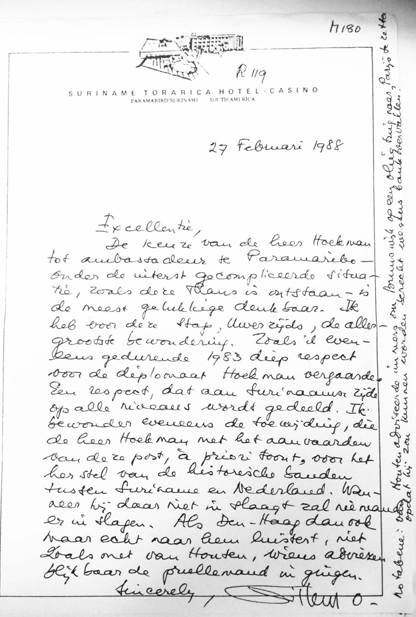 M180
R 119
SURINAME TORARICA HOTEL - CASINO
PARAMARIBO/SURINAME SOUTH AMERICA
27 Februari 1988
Excellentie,
De keuze van de heer Hoekman
tot ambassadeur te Paramaribo-
onder de uiterst gecompliceerde situa-
tie, zoals deze thans is ontstaan - is
de meest gelukkige denkbaar. Ik
heb voor deze stap, Uwerzijds, de aller-
grootste bewondering. Zoals ik even-
eens gedurende 1983 diep respect
voor de diplomaat Hoekman vergaarde.
Een respect, dat aan Surinaamse zijde
op alle niveaus wordt gedeeld. Ik
bewonder eveneens de toewijding, die
de heer Hoekman met het aanvaarden
van deze post, à priori toont, voor het
herstel van de historische banden
tussen Suriname en Nederland. Wan-
neer hij daar niet in slaagt zal niemand
er in slagen. Als Den-Haag dan ook
maar echt naar hem luistert, niet
zoals met van Houten, wiens adviezen
blijkbaar de prullemand in gingen.
Sincerely, Willem O-
nota bene: van Houten adviseerde immers om Brunswijk op een vliegtuig naar Parijs te zetten
opdat hij zou kunnen worden berecht wegens bankovervallen!